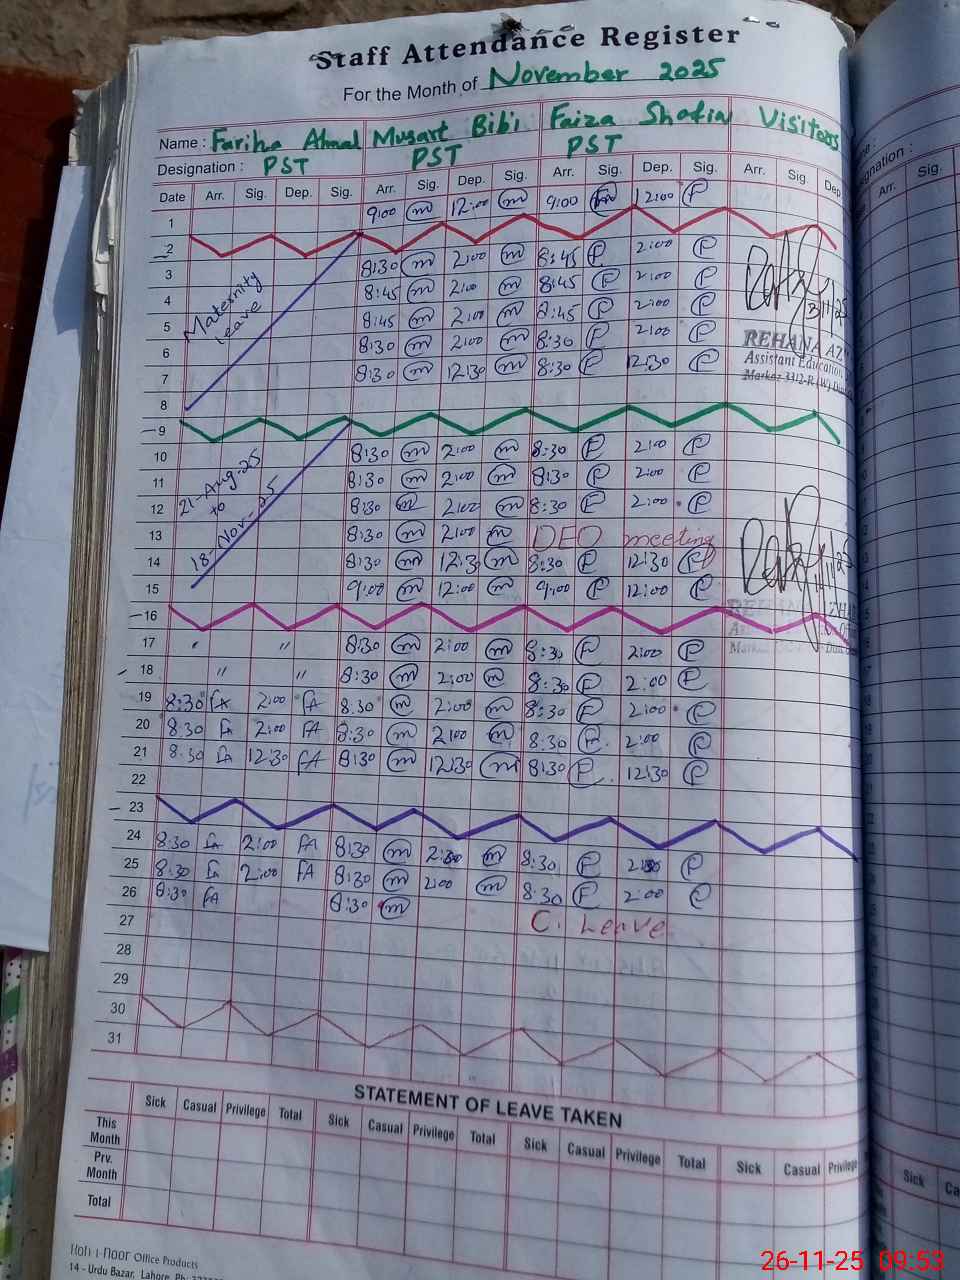 Staff Attendance Register
For the Month of November 2025
Name : Fariha Ahmad Musart Bibi Faiza Shafiq Visitors
Designation : PST PST PST
Date Arr. Sig. Dep. Sig. Arr. Sig. Dep. Sig. Arr. Sig. Dep. Sig. Arr. Sig. Dep
1 9:00 m 12:00 m 9:00 12:00 F
2
3 8:30 m 2:00 m 8:45 F 2:00 F
4 8:45 m 2:00 m 8:45 F 2:00 F
5 Maternity Leave 8:45 m 2:00 m 8:45 F 2:00 F
6 8:30 m 2:00 m 8:30 F 2:00 F
7 8:30 m 12:30 m 8:30 F 12:30 F
3/11/25
REHANA AZ
Assistant Education
Markaz 331/2-R (W)
8
9
10 8:30 m 2:00 m 8:30 F 2:00 F
11 8:30 m 2:00 m 8:30 F 2:00 F
12 21-Aug-25 to 18-Nov-25 8:30 m 2:00 m 8:30 F 2:00 F
13 8:30 m 2:00 m DEO meeting
14 8:30 m 12:30 m 8:30 F 12:30 F
15 9:00 m 12:00 m 9:00 F 12:00 F
11/11/25
16
17 " " 8:30 m 2:00 m 8:30 F 2:00 F
18 " " 8:30 m 2:00 m 8:30 F 2:00 F
19 8:30 FA 2:00 FA 8:30 m 2:00 m 8:30 F 2:00 F
20 8:30 FA 2:00 FA 8:30 m 2:00 m 8:30 F 2:00 F
21 8:30 FA 12:30 FA 8:30 m 12:30 m 8:30 F 12:30 F
22
23
24 8:30 FA 2:00 FA 8:30 m m 8:30 F F
25 8:30 FA 2:00 FA 8:30 m 2:00 m 8:30 F 2:00 F
26 8:30 FA 8:30 m C. Leave
27
28
29
30
31
STATEMENT OF LEAVE TAKEN
Sick Casual Privilege Total Sick Casual Privilege Total Sick Casual Privilege Total Sick Casual Privilege
This Month
Prv. Month
Total
Koh-i-Noor Office Products
14 - Urdu Bazar, Lahore. Ph:
Arr. Sig.
Sick
26-11-25 09:53